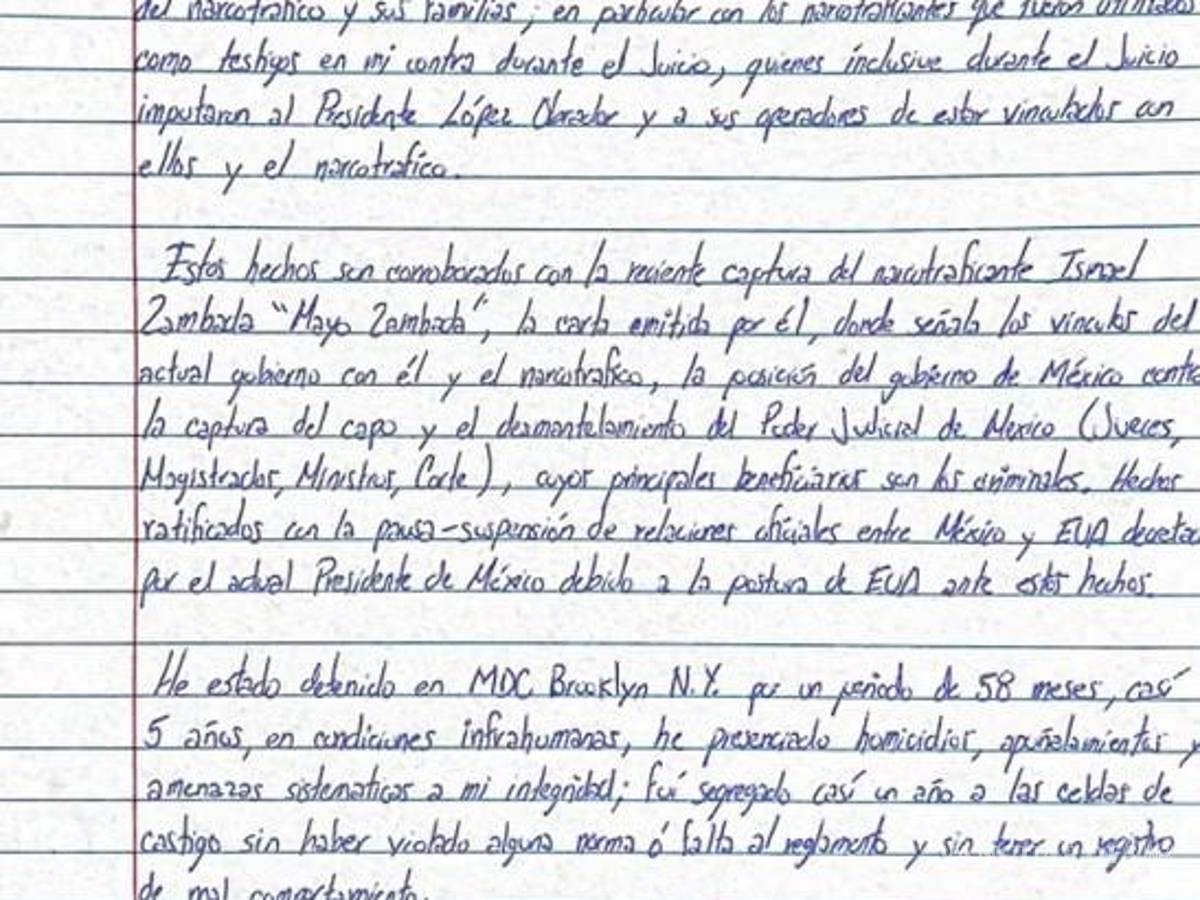 del narcotrafico y sus familias; en particular con los narcotraficantes que fueron utilizados
como testigos en mi contra durante el Juicio, quienes inclusive durante el Juicio
imputaron al Presidente López Obrador y a sus operadores de estar vinculados con
ellos y el narcotrafico.
Estos hechos son corroborados con la reciente captura del narcotraficante Ismael
Zambada "Mayo Zambada", la carta emitida por él, donde señala los vinculos del
actual gobierno con él y el narcotrafico, la posición del gobierno de México contra
la captura del capo y el desmantelamiento del Poder Judicial de Mexico (Jueces,
Magistrados, Ministros, Corte), cuyos principales beneficiarios son los criminales. Hechos
ratificados con la pausa-suspensión de relaciones oficiales entre México y EUA decreta
por el actual Presidente de México debido a la postura de EUA ante estos hechos.
He estado detenido en MDC Brooklyn N.Y. por un periodo de 58 meses, casí
5 años, en condiciones infrahumanas, he presenciado homicidios, apuñalamientos y
amenazas sistematicas a mi integridad; fuí segregado casí un año a las celdas de
castigo sin haber violado alguna norma ó falta al reglamento y sin tener un registro
de mal comportamiento.